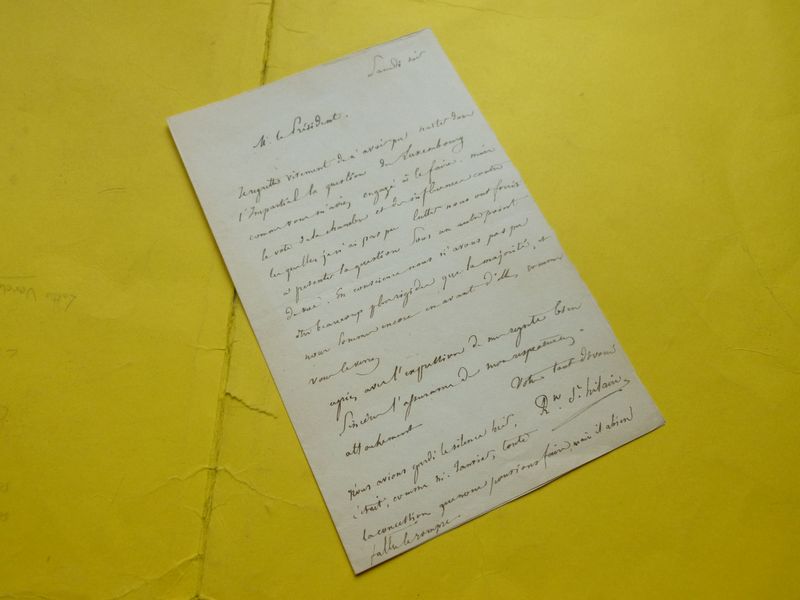 Samedi soir
M. le Président.
Je regrette vivement de n'avoir pu traiter dans
l'Impartial la question du Luxembourg
comme vous m'aviez engagé à le faire. mais
le vote de la chambre et des influences contre
lesquelles je n'ai pas pu lutter nous ont forcés
à présenter la question sous un autre point
de vue. En conscience nous n'avons pas pu
être beaucoup plus rigides que la majorité, et
nous sommes encore en avant d'elle, comme
vous le verrez
agréez avec l'expression de mes regrets bien
sincères l'assurance de mon respectueux
attachement
Votre tout dévoué
St hilaire
Nous avions gardé le silence hier,
c'était, comme M. Janvier, toute
la concession que nous pouvions faire, mais il a bien
fallu le rompre.